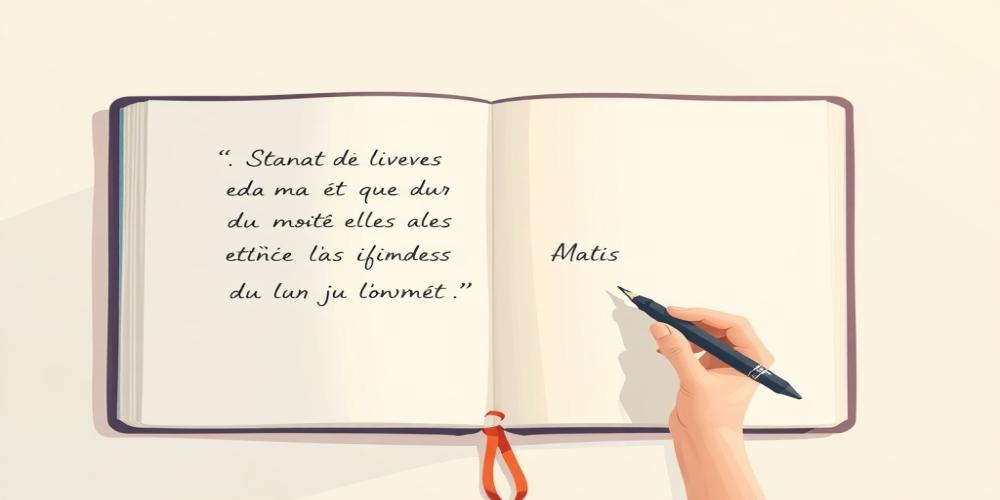 “. Stanat dė liveves
eda ma ét que dur
du moitê elles ales
l'as ifimdess
du lun ju l'onvmét.”
Matis